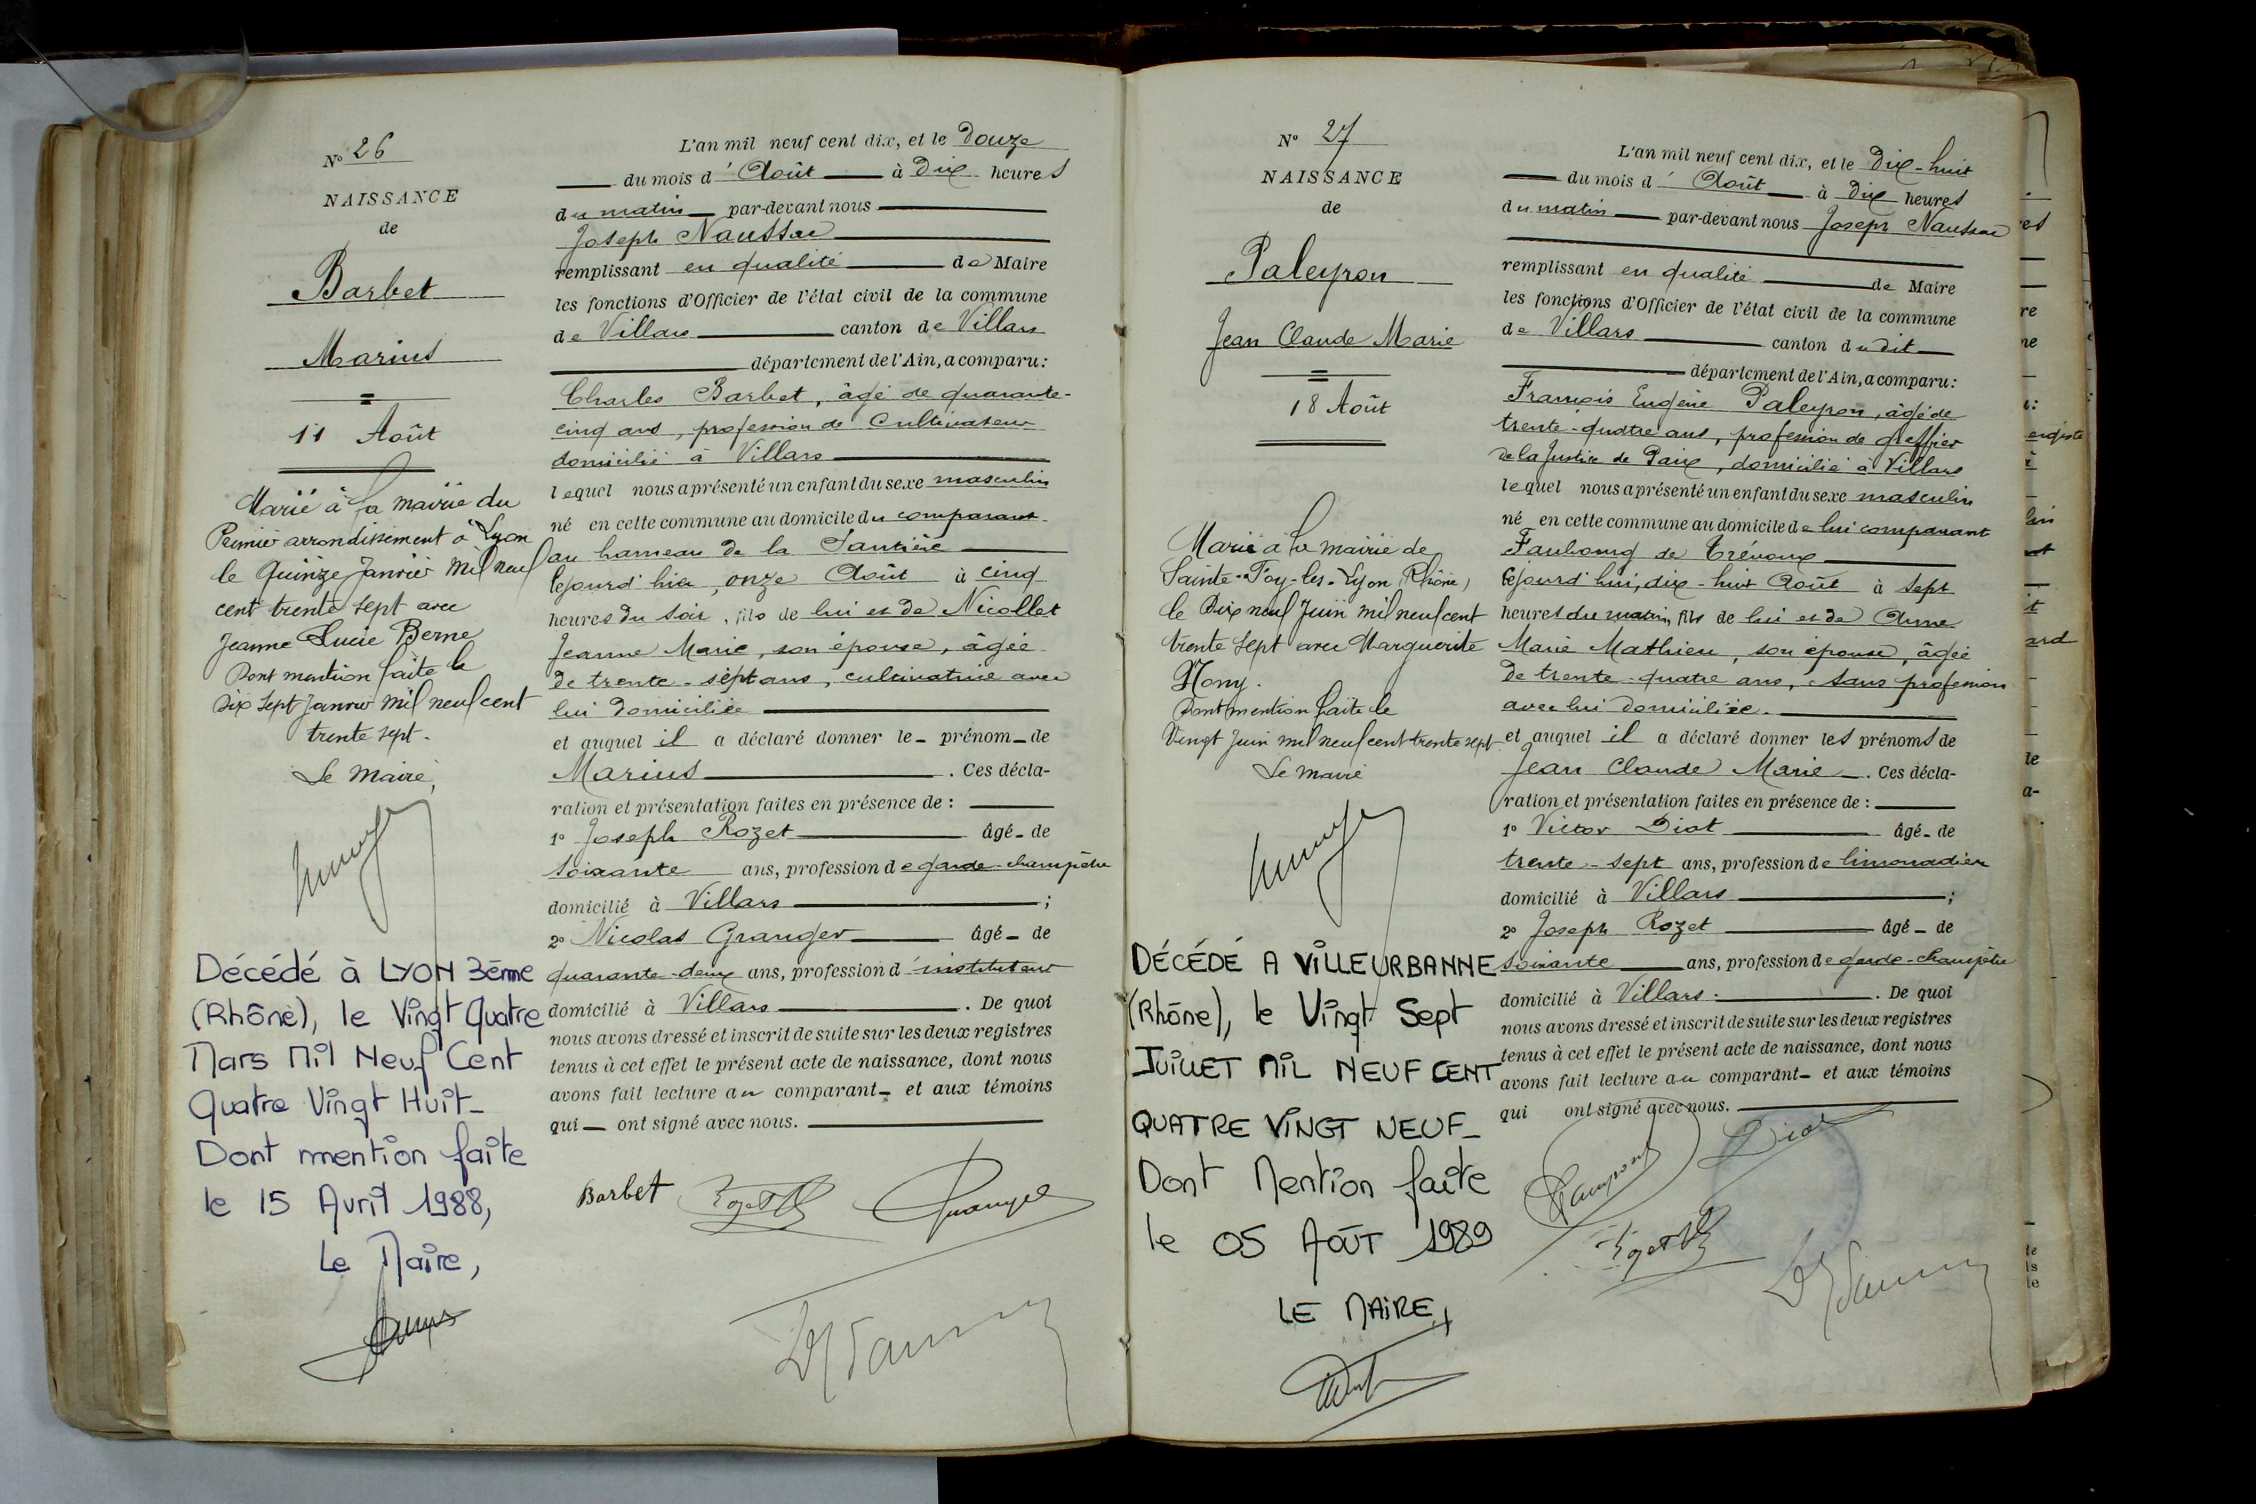 N° 26
NAISSANCE
de
Barbet
Marius
11 Août
Marié à la mairie du
Premier arrondissement à Lyon
le Quinze Janvier mil neuf
cent trente sept avec
Jeanne Lucie Berne
Dont mention faite le
Dix sept Janvier mil neuf cent
trente sept.
Le Maire,
Décédé à LYON 3ème
(Rhône), le Vingt Quatre
Mars Mil Neuf Cent
Quatre Vingt Huit_
Dont mention faite
le 15 Avril 1988,
Le Maire,
L'an mil neuf cent dix, et le Douze
du mois d' Août à Dix heures
du matin par-devant nous
Joseph
remplissant en qualité de Maire
les fonctions d'Officier de l'état civil de la commune
de Villars canton de Villars
département de l'Ain, a comparu:
Charles Barbet, âgé de quarante-
cinq ans, profession de Cultivateur
domicilié à Villars
lequel nous a présenté un enfant du sexe masculin
né en cette commune au domicile du comparant
au hameau de la
cejourd'hier, onze Août à cinq
heures du soir, fils de lui et de Nicollet
Jeanne Marie, son épouse, âgée
de trente-sept ans, cultivatrice avec
lui domiciliée
et auquel il a déclaré donner le prénom de
Marius. Ces décla-
ration et présentation faites en présence de :
1° Joseph Rozet âgé de
soixante ans, profession de garde-champêtre
domicilié à Villars ;
2° Nicolas Granger âgé de
quarante-deux ans, profession d'instituteur
domicilié à Villars. De quoi
nous avons dressé et inscrit de suite sur les deux registres
tenus à cet effet le présent acte de naissance, dont nous
avons fait lecture au comparant et aux témoins
qui ont signé avec nous.
Barbet Rozet Granger
N° 27
NAISSANCE
de
Paleyron
Jean Claude Marie
18 Août
Marié à la mairie de
Sainte-Foy-les-Lyon (Rhône)
le Dix neuf Juin mil neuf cent
trente sept avec Marguerite
Mony.
Dont mention faite le
Vingt Juin mil neuf cent trente sept.
Le Maire
DÉCÉDÉ A VILLEURBANNE
(Rhône), le Vingt Sept
JUILLET MIL NEUF CENT
QUATRE VINGT NEUF_
Dont Mention faite
le 05 AOÛT 1989
LE MAIRE,
L'an mil neuf cent dix, et le Dix-huit
du mois d' Août à Dix heures
du matin par-devant nous Joseph
remplissant en qualité de Maire
les fonctions d'Officier de l'état civil de la commune
de Villars canton dudit
département de l'Ain, a comparu:
François Eugène Paleyron, âgé de
trente-quatre ans, profession de greffier
de la Justice de Paix, domicilié à Villars
lequel nous a présenté un enfant du sexe masculin
né en cette commune au domicile de lui comparant
Faubourg de Trévoux
cejourd'hui, dix-huit Août à sept
heures du matin, fils de lui et de Anne
Marie Mathieu, son épouse, âgée
de trente-quatre ans, sans profession
avec lui domiciliée.
et auquel il a déclaré donner les prénoms de
Jean Claude Marie. Ces décla-
ration et présentation faites en présence de :
1° Victor Diot âgé de
trente-sept ans, profession de limonadier
domicilié à Villars ;
2° Joseph Rozet âgé de
soixante ans, profession de garde-champêtre
domicilié à Villars. De quoi
nous avons dressé et inscrit de suite sur les deux registres
tenus à cet effet le présent acte de naissance, dont nous
avons fait lecture au comparant et aux témoins
qui ont signé avec nous.
Diot
Rozet